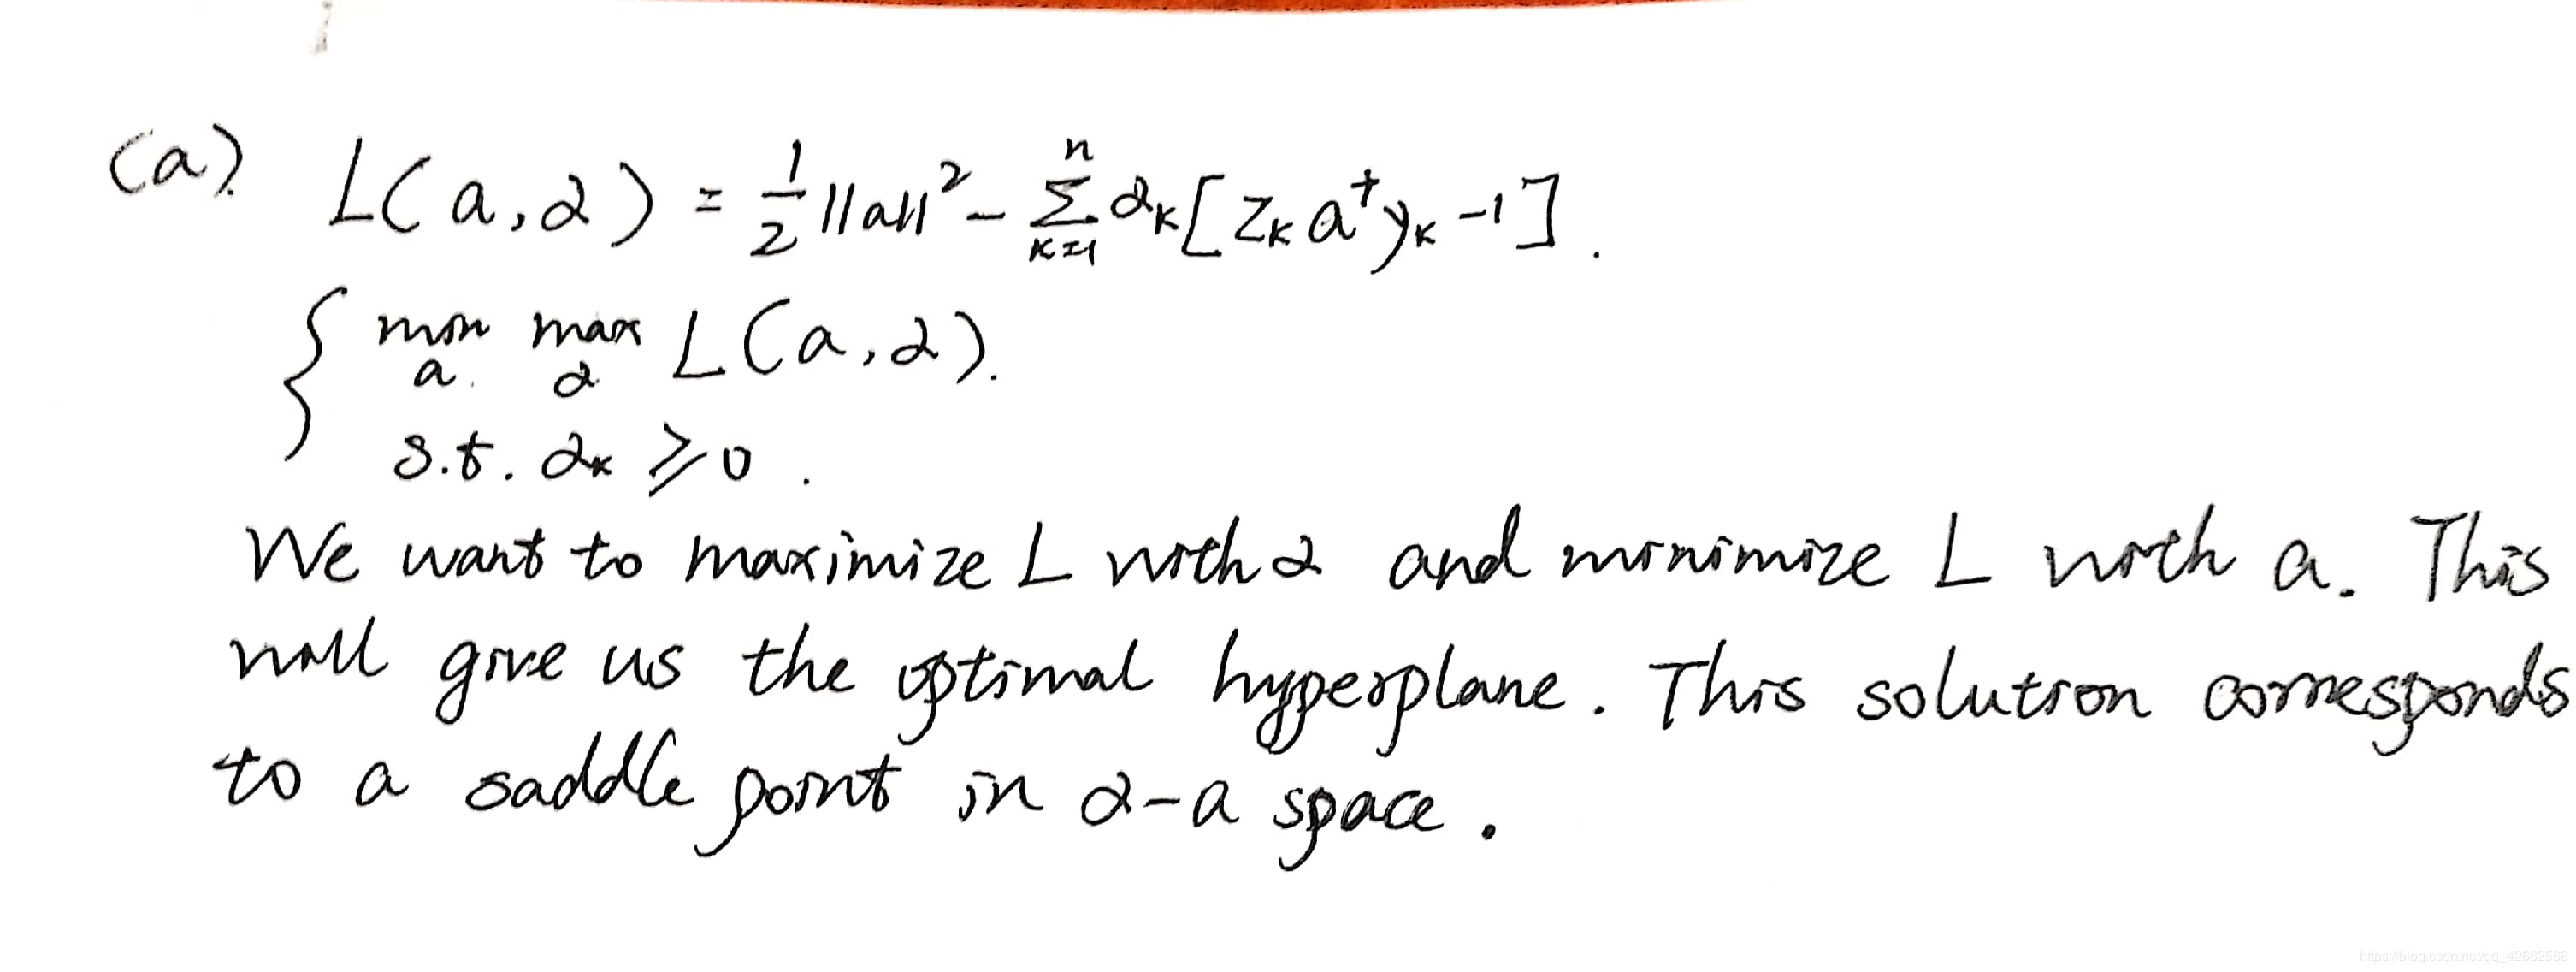 (a). L(a,α) = 1/2 ||a||² - Σ_{k=1}^{n} α_k [z_k a^t y_k - 1].
{ min_a. max_α L(a,α).
s.t. α_k ≥ 0.
We want to maximize L with α and minimize L with a. This
will give us the optimal hyperplane. This solution corresponds
to a saddle point in α-a space.
https://blog.csdn.net/qq_42662568